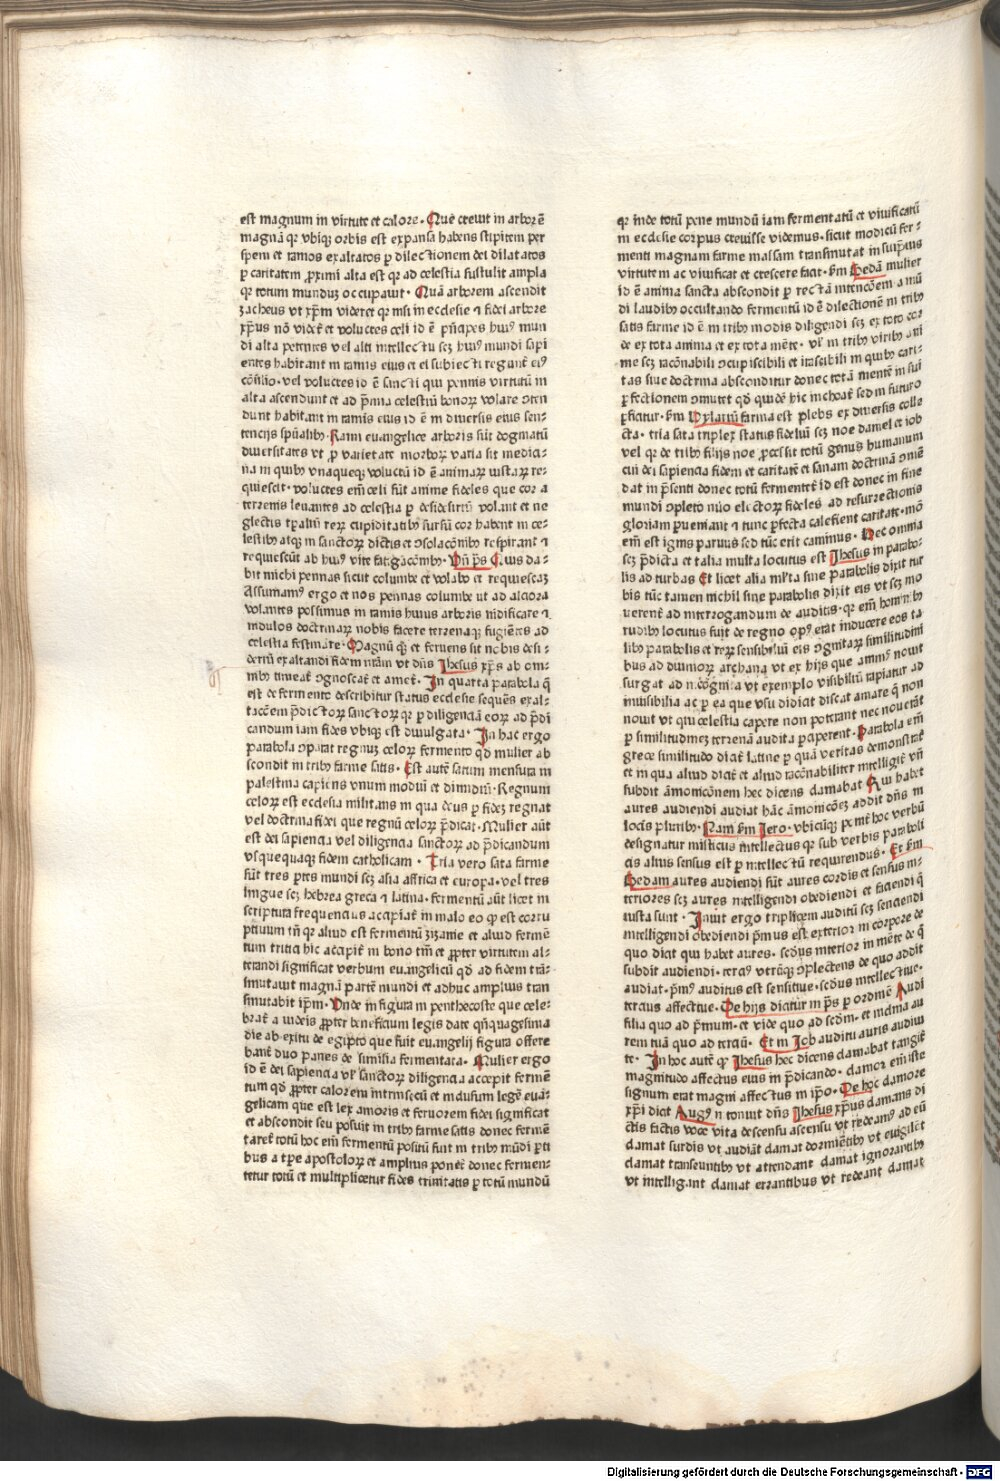 est magnum in virtute et calore. Que creuit in arborē
magnā qr vbiqꝫ orbis est expansa habens stipitem per
spem et ramos exaltatos ꝑ dilectionem dei dilatatos
ꝑ caritatem ꝓximi alta est qr ad celestia sustulit ampla
qr totum munduꝫ occupauit. Quā arborem ascendit
zacheus vt xp̄m videret qr nisi in ecclesie ⁊ fidei arbore
xp̄us nō videt̄ et volucres celi id ē pn̄cipes huiꝰ mun
di alta petentes vel alti intellectu scꝫ huiꝰ mundi sapi
entes habitant in ramis eius et ei subiecti regunt̄ eiꝰ
cōsilio. vel volucres id ē sancti qui pennis virtutū in
alta ascendunt et ad p̄mia celestiū bonoꝝ volare ↄten
dunt habitant in ramis eius id ē in diuersis eius sen-
tencijs spūalibꝫ. Rami euangelice arboris sūt dogmatū
diuersitates vt ꝓ varietate morboꝝ varia sit medici-
na in quibꝫ vnaqueqꝫ volucrū id ē animaꝝ iustaꝝ re-
quiescit. volucres em̄ celi sūt anime fideles que cor a
terrenis leuantes ad celestia ꝑ desideriū volant et ne
glectis tꝑaliū reꝝ cupiditatibꝫ sursū cor habent in ce-
lestibꝫ atqꝫ in sanctoꝝ dictis et ↄsolacōnibꝫ respirant ⁊
requiescūt ab huiꝰ vite fatigacōnibꝫ. Vn̄ ps̄ Quis da-
bit michi pennas sicut columbe et volabo et requiescaꝫ
Assumamꝰ ergo et nos pennas columbe ut ad alciora
volantes possimus in ramis huius arboris nidificare ⁊
nidulos doctrinaꝝ nobis facere terrenaqꝫ fugiētes ad
celestia festinare. Magnū qꝫ et feruens sit nobis desi-
deriū exaltandi fidem nr̄am vt dn̄s Jhesus xp̄s ab om-
nibꝫ timeat̄ ↄgnoscat̄ et amet̄. In quarta parabola q̄
est de fermento describitur status ecclesie sequēs exal-
tacōem p̄dictoꝝ sanctoꝝ qr ꝑ diligenciā eoꝝ ad p̄di
candum iam fides vbiqꝫ est diuulgata. In hac ergo
parabola ↄparat regnuꝫ celoꝝ fermento qd̄ mulier ab
scondit in tribꝫ farine satis. Est autē satum mensura in
palestina capiens vnum modiū et dimidiū. Regnum
celoꝝ est ecclesia militans in qua deus ꝑ fideꝫ regnat
vel doctrina fidei que regnū celoꝝ p̄dicat. Mulier aūt
est dei sapiencia vel diligencia sanctoꝝ ad p̄dicandum
vsquequaqꝫ fidem catholicam. Tria vero sata farine
sūt tres ꝑtes mundi scꝫ asia affrica et europa. vel tres
lingue scꝫ hebrea greca ⁊ latina. fermentū aūt licet in
scriptura frequencius accapiat̄ in malo eo qꝫ est corru
ptiuum tn̄ qr aliud est fermentū zizanie et aliud fermē
tum tritici hic accipit̄ in bono tm̄ et ꝓpter virtutem al-
terandi significat verbum euangelicū qd̄ ad fidem trā-
smutauit magnā partē mundi et adhuc amplius tran
smutabit ip̄m. Vnde in figura in penthecoste que cele-
brat̄ a iudeis ꝓpter beneficium legis date qn̄quagesima
die ab exitu de egipto que fuit euangelij figura offere
bant̄ duo panes de similia fermentata. Mulier ergo
id ē dei sapiencia vr̄ sanctoꝝ diligencia accepit fermē
tum qd̄ ꝓpter calorem intrinsecū et inclusum legē euā-
gelicam que est lex amoris et feruorem fidei significat
et abscondit seu posuit in tribꝫ farine satis donec fermē
taret̄ totū hoc em̄ fermentū positū fuit in tribꝫ mūdi ꝑti
bus a tꝑe apostoloꝝ et amplius ponet̄ donec fermen-
tetur totū et multiplicetur fides trinitatis ꝑ totū mundū
qr inde totū pene mundū iam fermentatū et viuificatū
in ecclesie corpus creuisse videmus. sicut modicū fer-
menti magnam farine massam transmutat in suip̄ius
virtutem ac viuificat et crescere facit. sm̄ Bedā mulier
id ē anima sancta abscondit ꝑ rectā intencōem a mū
di laudibꝫ occultando fermentū id ē dilectionē in tribꝫ
satis farine id ē in tribꝫ modis diligendi scꝫ ex toto cor
de ex tota anima et ex tota mēte. vr̄ in tribꝫ viribꝫ ani
me scꝫ racōnabili ↄcupiscibili et irascibili in quibꝫ cari-
tas siue doctrina absconditur donec totā mentē in sui
ꝑfectionem ↄmutet qd̄ quidē hic inchoat̄ sed in futuro
ꝑficitur. sm̄ Hylariū farina est plebs ex diuersis colle
cta. tria sata triplex status fideliū scꝫ noe daniel et iob
vel qr de tribꝫ filijs noe ꝓcessit totū genus humanum
cui dei sapiencia fidem et caritatē et sanam doctrinā ↄmēē
dat in p̄senti donec totū fermentet̄ id est donec in fine
mundi ↄpleto nūo electoꝝ fideles ad resurrectionis
gloriam ꝑueniant ⁊ tunc ꝑfecta calefient caritate. mō
em̄ est ignis paruus sed tūc erit caminus. Hec omnia
scꝫ p̄dicta et talia multa locutus est Jhesus in parabo-
lis ad turbas Et licet alia ml̄ta sine parabolis dixit tur
bis tūc tamen nichil sine parabolis dixit eis vt scꝫ mo
uerent̄ ad interrogandum de auditis. qr em̄ hominibꝫ
rudibꝫ locutus fuit de regno opꝰ erat inducere eos ta
libꝫ parabolis et reꝝ sensibiliū eis ↄgnitaꝝ similitudini
bus ad diuinoꝝ archana vt ex hijs que animꝰ nouit
surgat ad incōgnita vt exemplo visibiliū rapiatur ad
inuisibilia ac ꝑ ea que vsu didicit discat amare q̄ non
nouit vt qui celestia capere non poterant nec nouerāt
ꝑ similitudineꝫ terrenā audita ꝑciperent. Parabola em̄
grece similitudo dicit̄ latine ꝑ quā veritas demonstrat̄
et in qua aliud dicit̄ et aliud racōnabiliter intelligit̄ vn̄
subdit āmonicōnem hec dicens clamabat Qui habet
aures audiendi audiat hāc āmonicōeꝫ addit dn̄s in
locis pluribꝫ. Nam sm̄ Jero. vbicūqꝫ ponit̄ hoc verbū
designatur misticus intellectus qr sub verbis paraboli
cis alius sensus est ꝑ intellectū requirendus. Et sm̄
Bedam aures audiendi sūt aures cordis et sensus in-
teriores scꝫ aures intelligendi obediendi et faciendi q̄
iusta sunt. Inuit ergo triplicem auditū scꝫ senciendi
intelligendi obediendi p̄mus est exterior in corpore de
quo dicit qui habet aures. scd̄us interior in mēte de q̄
subdit audiendi. terciꝰ vtrūqꝫ ↄplectens de quo addit
audiat. p̄mꝰ auditus est sensitiue. scd̄us intellectiue.
tercius affectiue. De hijs dicitur in ps̄ ꝑ ordinē Audi
filia quo ad p̄mum. et vide quo ad scd̄m. et inclina au
rem tuā quo ad terciū. Et in Job auditu auris audiui
te. In hoc autē qꝫ Jhesus hec dicens clamabat tangit̄
magnitudo affectus eius in p̄dicando. clamor em̄ iste
signum erat magni affectus in ip̄o. De hoc clamore
xp̄i dicit Augꝰ intonuit dn̄s Jhesus xp̄us clamans di
ctis factis voce vita descensu ascensu vt redeamꝰ ad eū
clamat surdis vt audiāt clamat dormiētibꝫ vt euigilēt
clamat transeuntibꝫ vt attendant clamat ignorantibꝫ
vt intelligant clamat errantibus vt redeant clamat
Digitalisierung gefördert durch die Deutsche Forschungsgemeinschaft - DFG